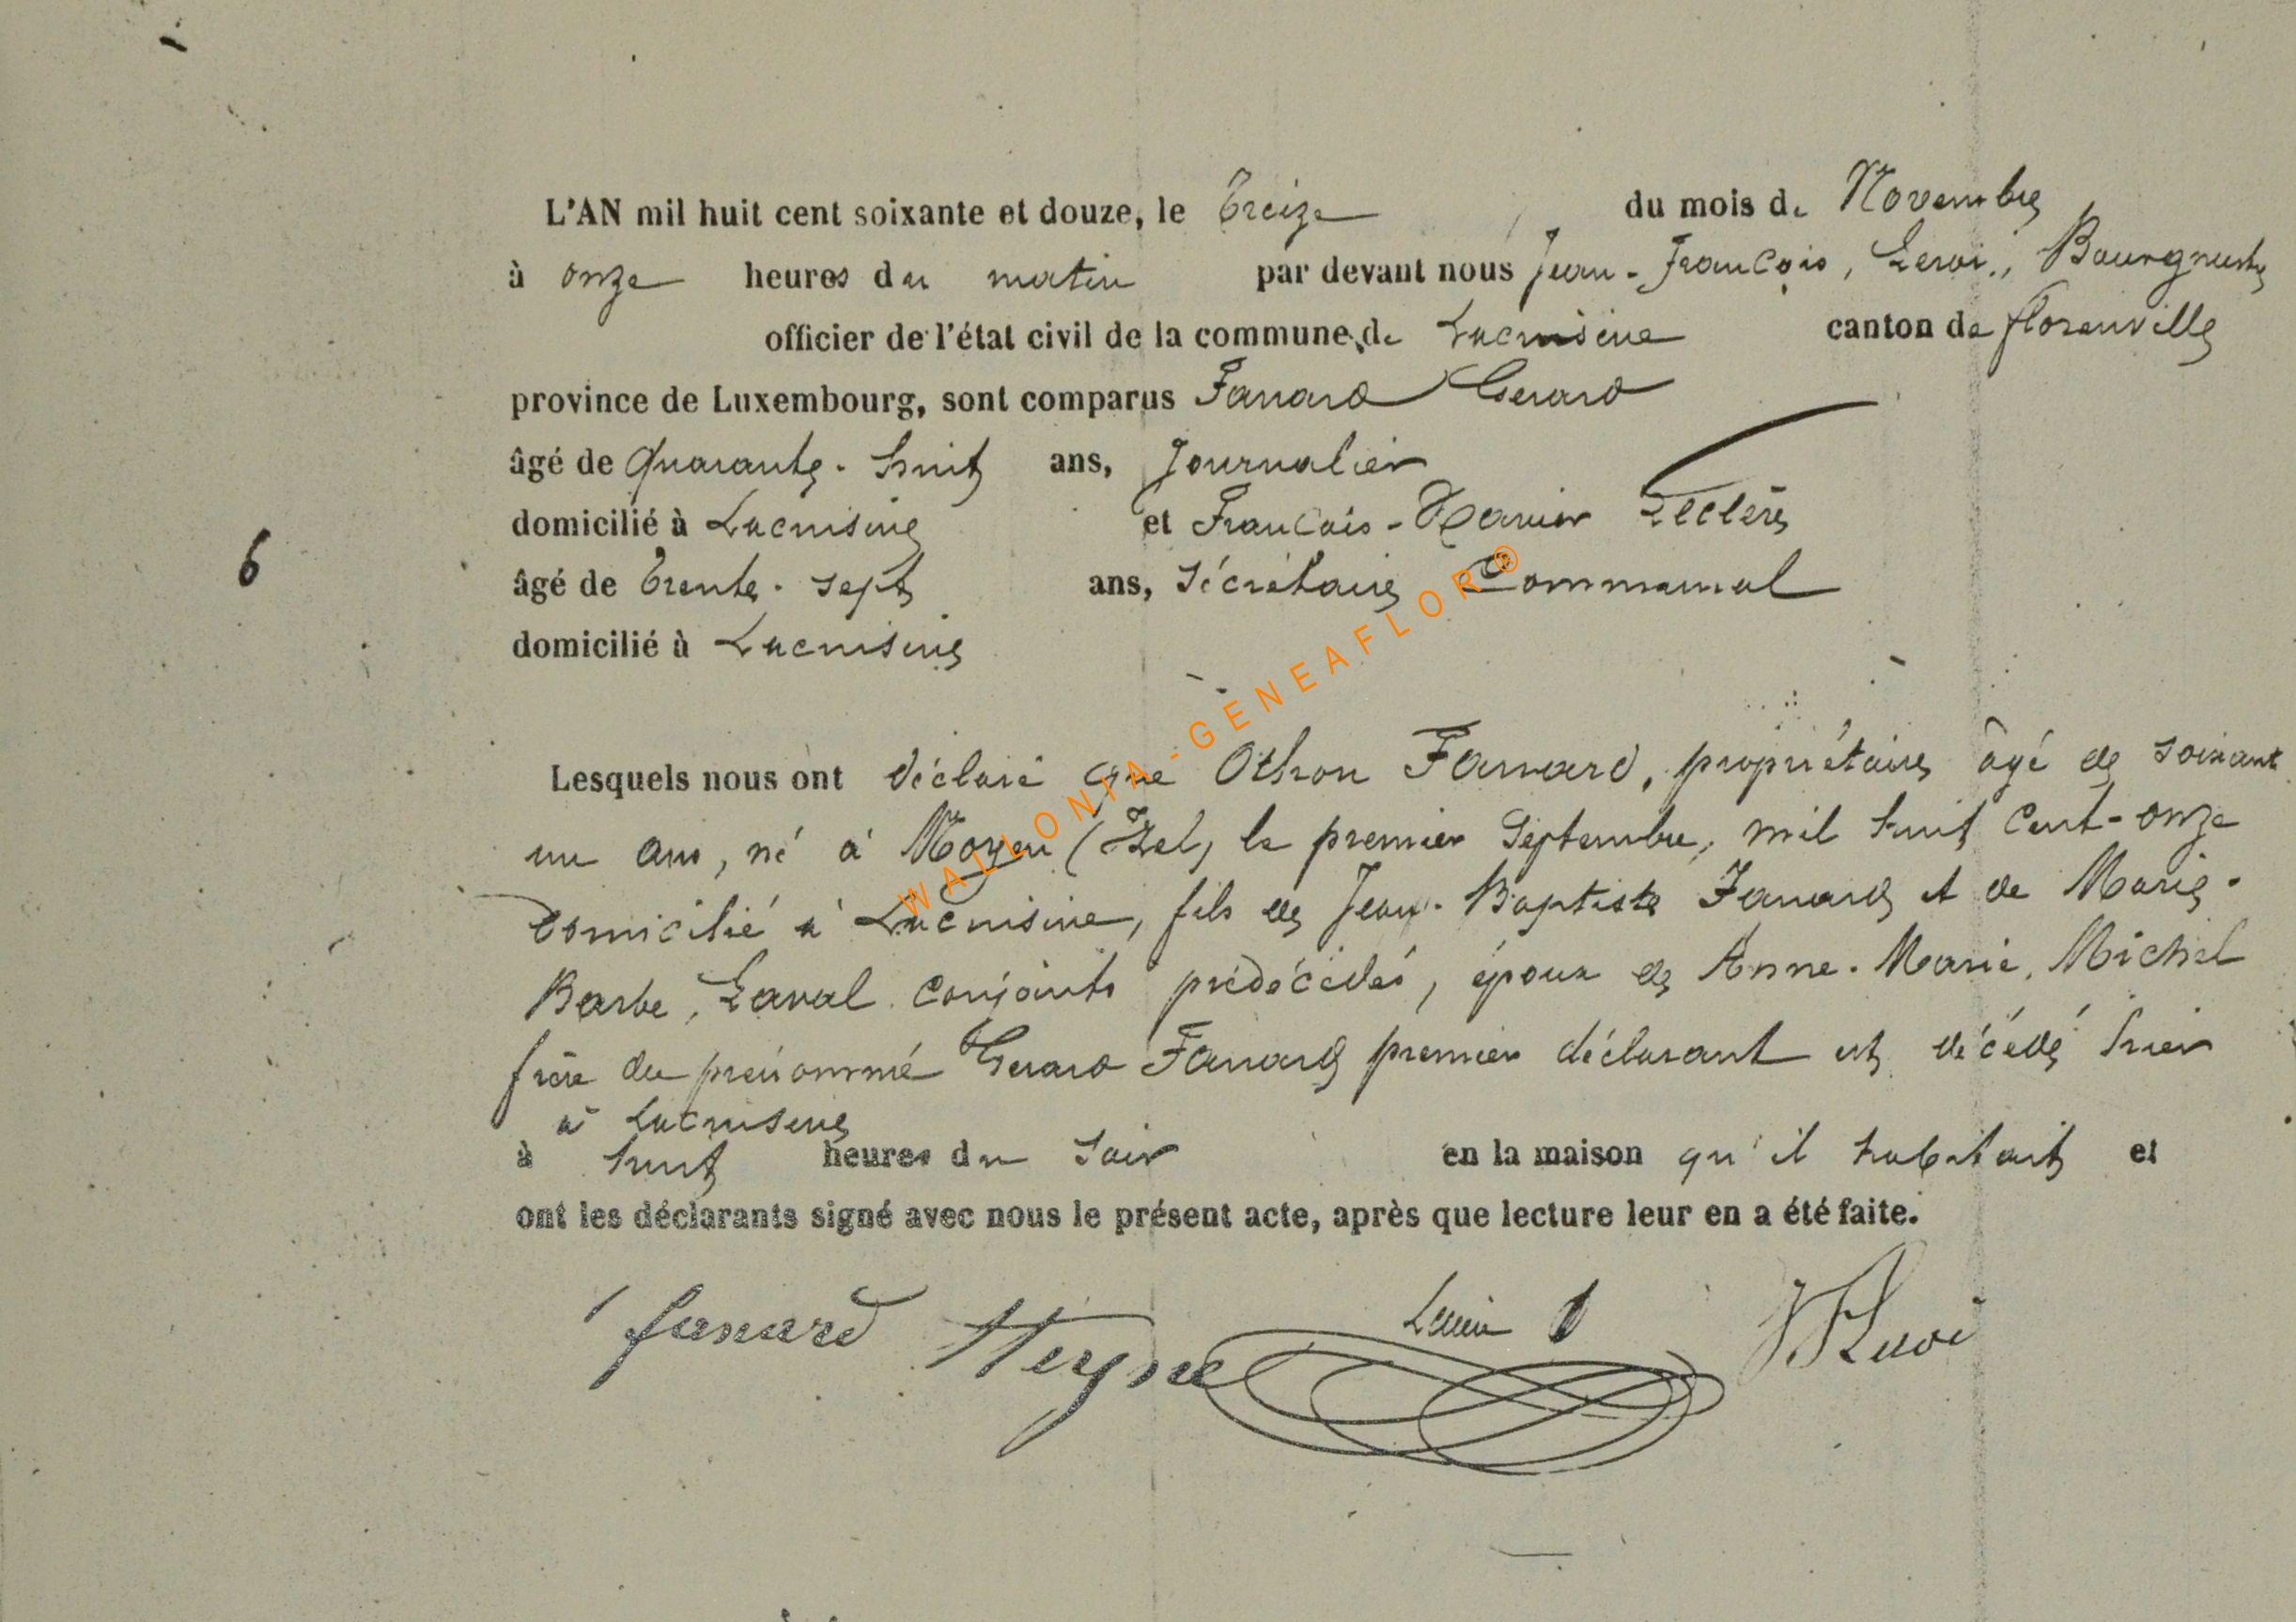 L'AN mil huit cent soixante et douze, le Treize du mois de Novembre
à onze heures du matin par devant nous Jean-François, Leroi, Bourgmestre
officier de l'état civil de la commune de Lacuisine canton de florenville
province de Luxembourg, sont comparus Fanard Gerard
âgé de Quarante-huit ans, Journalier
domicilié à Lacuisine et François-Xavier Leclère
6
âgé de Trente-sept ans, Sécrétaire Communal
domicilié à Lacuisine
Lesquels nous ont déclaré que Othon Fanard, propriétaire âgé de soixant
un ans, né à Moyen (Izel) le premier Septembre, mil huit cent-onze
domicilié à Lacuisine, fils de Jean-Baptiste Fanard et de Marie-
Barbe, Laval conjoints prédécédés, époux de Anne-Marie, Michel
frère du prénommé Gerard Fanard premier déclarant est décédé hier
à Lacuisine
à huit heures du soir en la maison qu'il habitait et
ont les déclarants signé avec nous le présent acte, après que lecture leur en a été faite.
fanard JFLeroi
WALLONIA-GENEAFLOR®